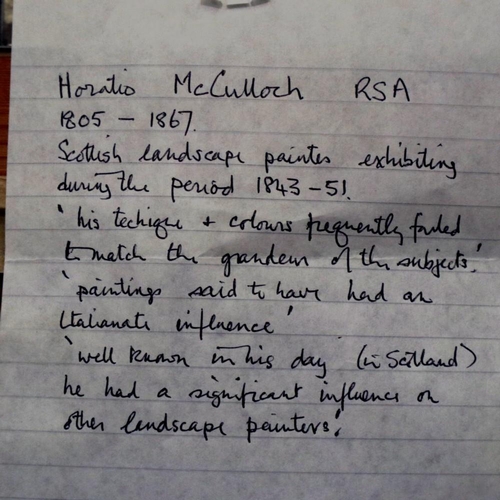 Horatio McCulloch RSA
1805 - 1867.
Scottish landscape painter exhibiting
during the period 1843-51.
'his techique + colours frequently failed
to match the grandeur of the subjects.'
'paintings said to have had an
Italianate influence'
'well known in his day (in Scotland)
he had a significant influence on
other landscape painters.'